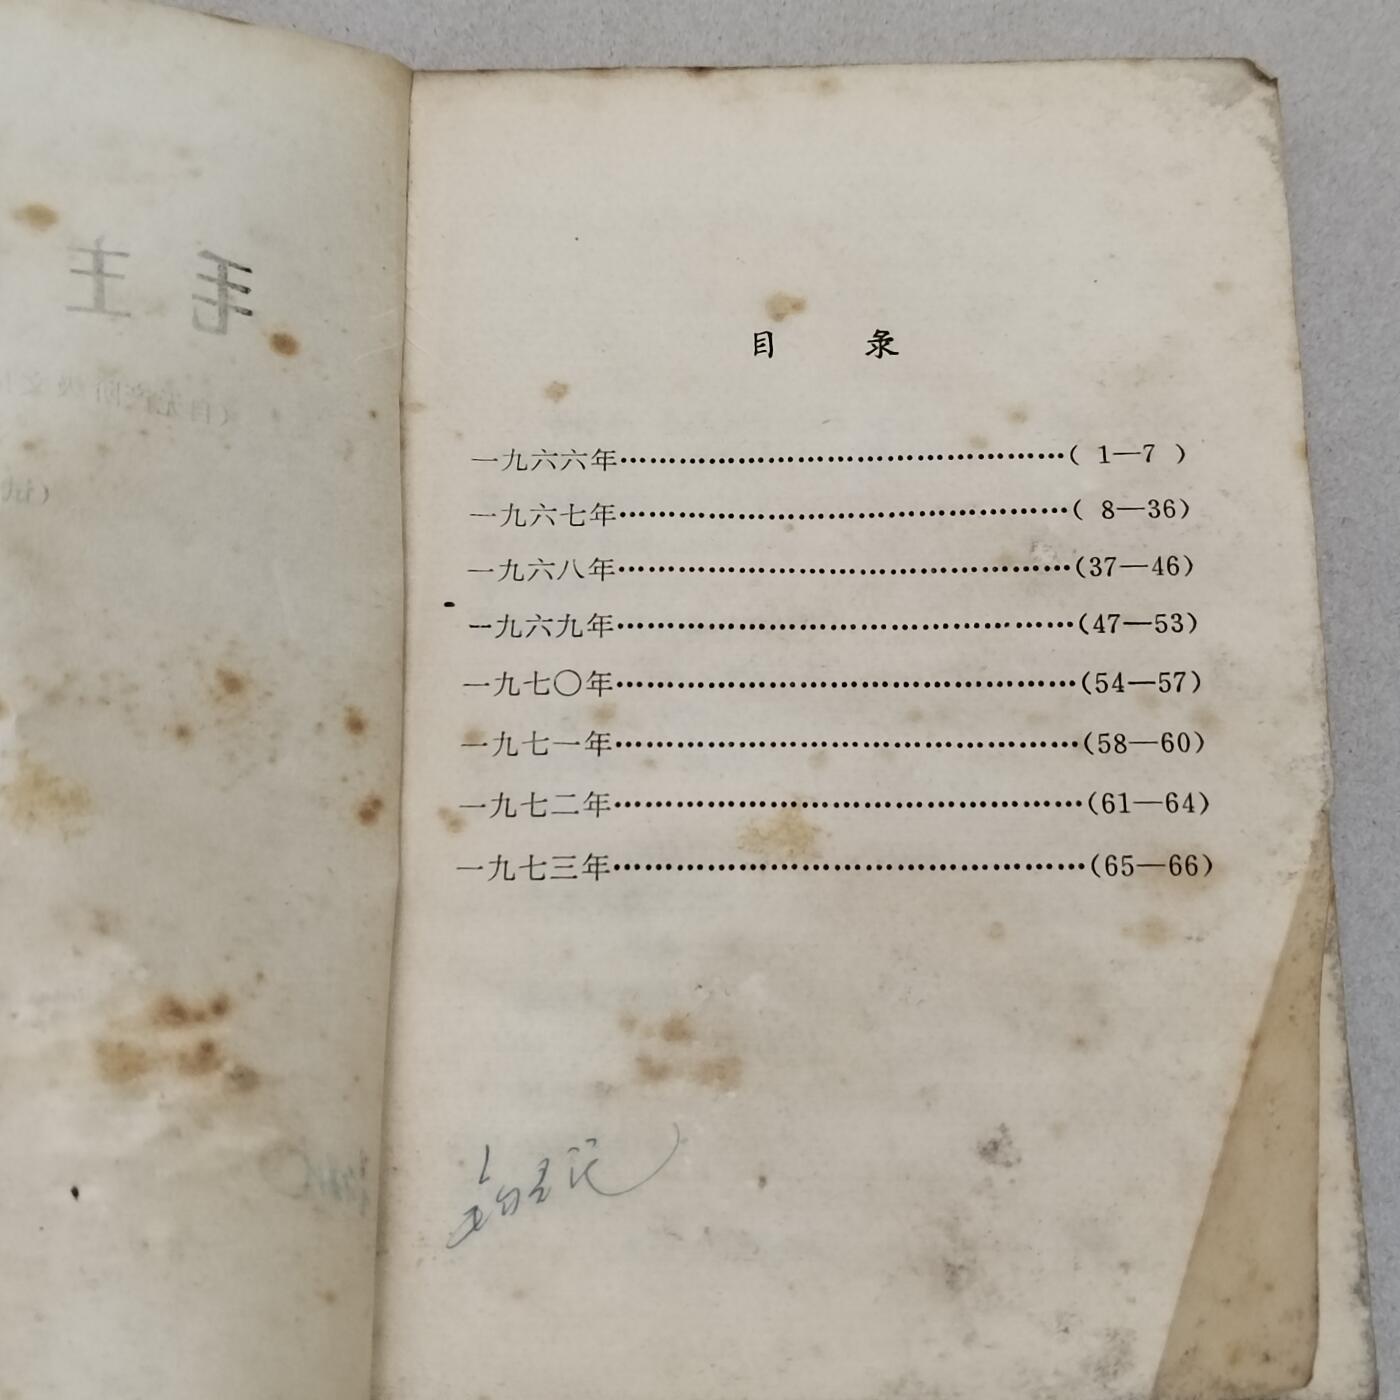 毛主
（自无产阶级文
（试
目 录
一九六六年……………………………………（ 1—7 ）
一九六七年……………………………………（ 8—36）
一九六八年……………………………………（37—46）
一九六九年……………………………………（47—53）
一九七〇年……………………………………（54—57）
一九七一年……………………………………（58—60）
一九七二年……………………………………（61—64）
一九七三年……………………………………（65—66）